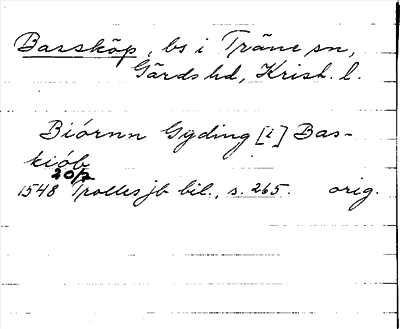 Bassköp, bs i Träne sn,
Gärds hd, Krist. l.
Biórnn Gyding [i] Bas-
kiób
20/7
1548 Trolles jb bil., s. 265. orig.